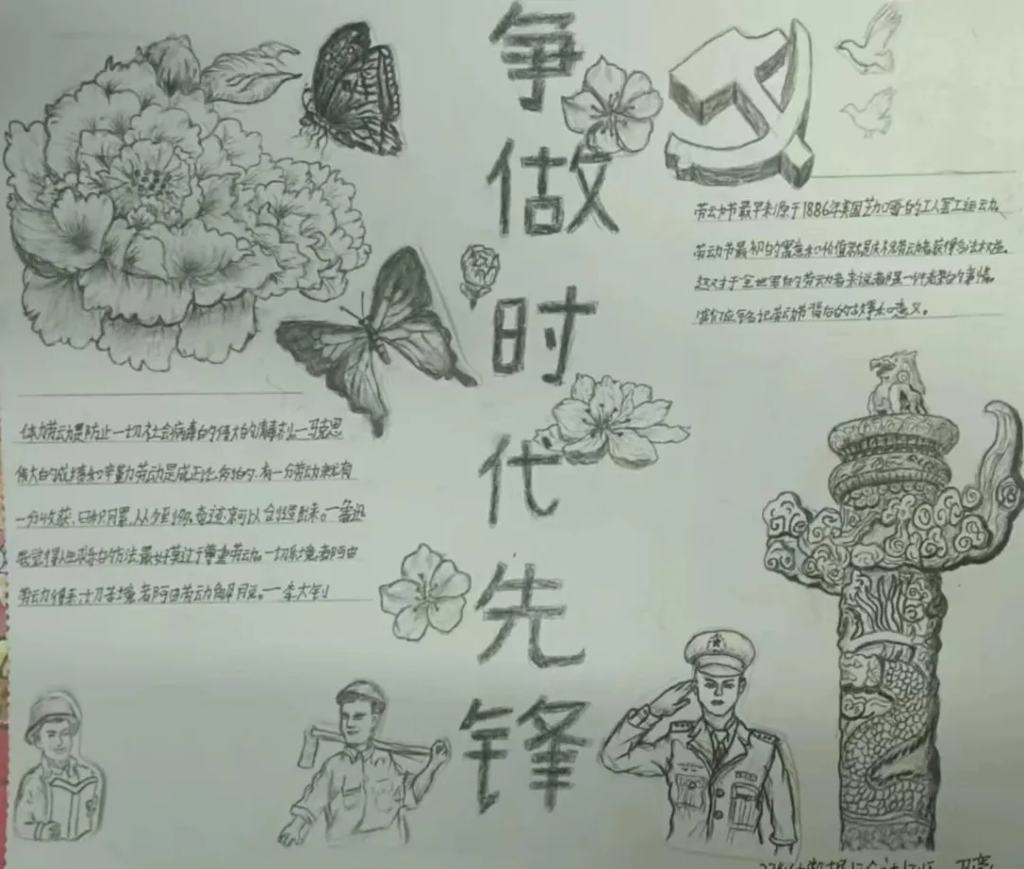 争做时代先锋
劳动节最早来源于1886年美国芝加哥的工人罢工运动。
劳动节最初的寓意和价值就是庆祝劳动者获得合法权益。
这对于全世界的劳动者来说都是一件者的事情。
我们应牢记劳动节背后的故事和意义。
体力劳动是防止一切社会病毒的伟大的消毒剂。—马克思
伟大的成绩和辛勤劳动是成正比例的,有一分劳动就有
一分收获,日积月累,从少到多,奇迹就可以创造出来。—鲁迅
我觉得人生求乐的方法,最好莫过于尊重劳动。一切乐境,都可由
劳动得来,一切苦境,都可由劳动解脱。—李大钊